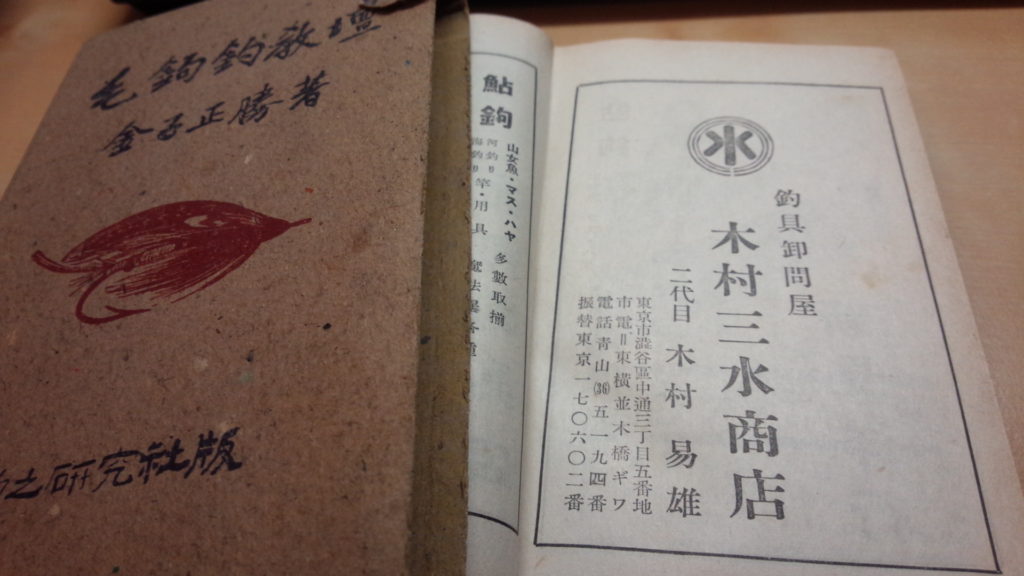 毛鉤釣教壇
金子正勝著
之研究社版
鮎鉤
山女魚・マス・ハヤ
河釣り
海釣り
竿・用具
多數取揃
水
釣具卸問屋
木村三水商店
二代目 木村易雄
東京市澁谷區中通三丁目五番地
市電=東横並木橋ギワ
電話青山(36)五一九四番
振替東京一七〇六〇二番